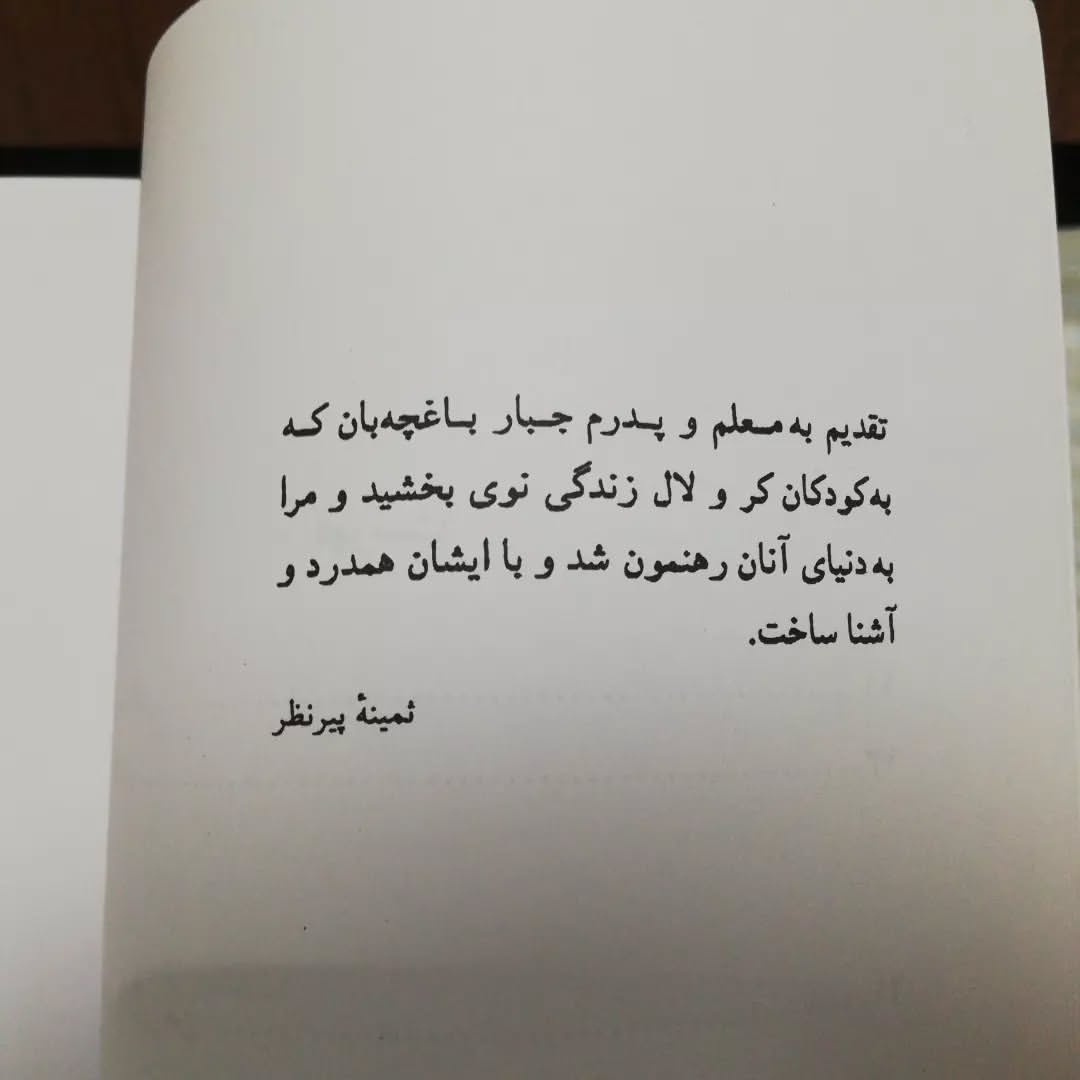 تقدیم به معلم و پدرم جبار باغچه‌بان که
به کودکان کر و لال زندگی نوی بخشید و مرا
به دنیای آنان رهنمون شد و با ایشان همدرد و
آشنا ساخت.
ثمینهٔ پیرنظر